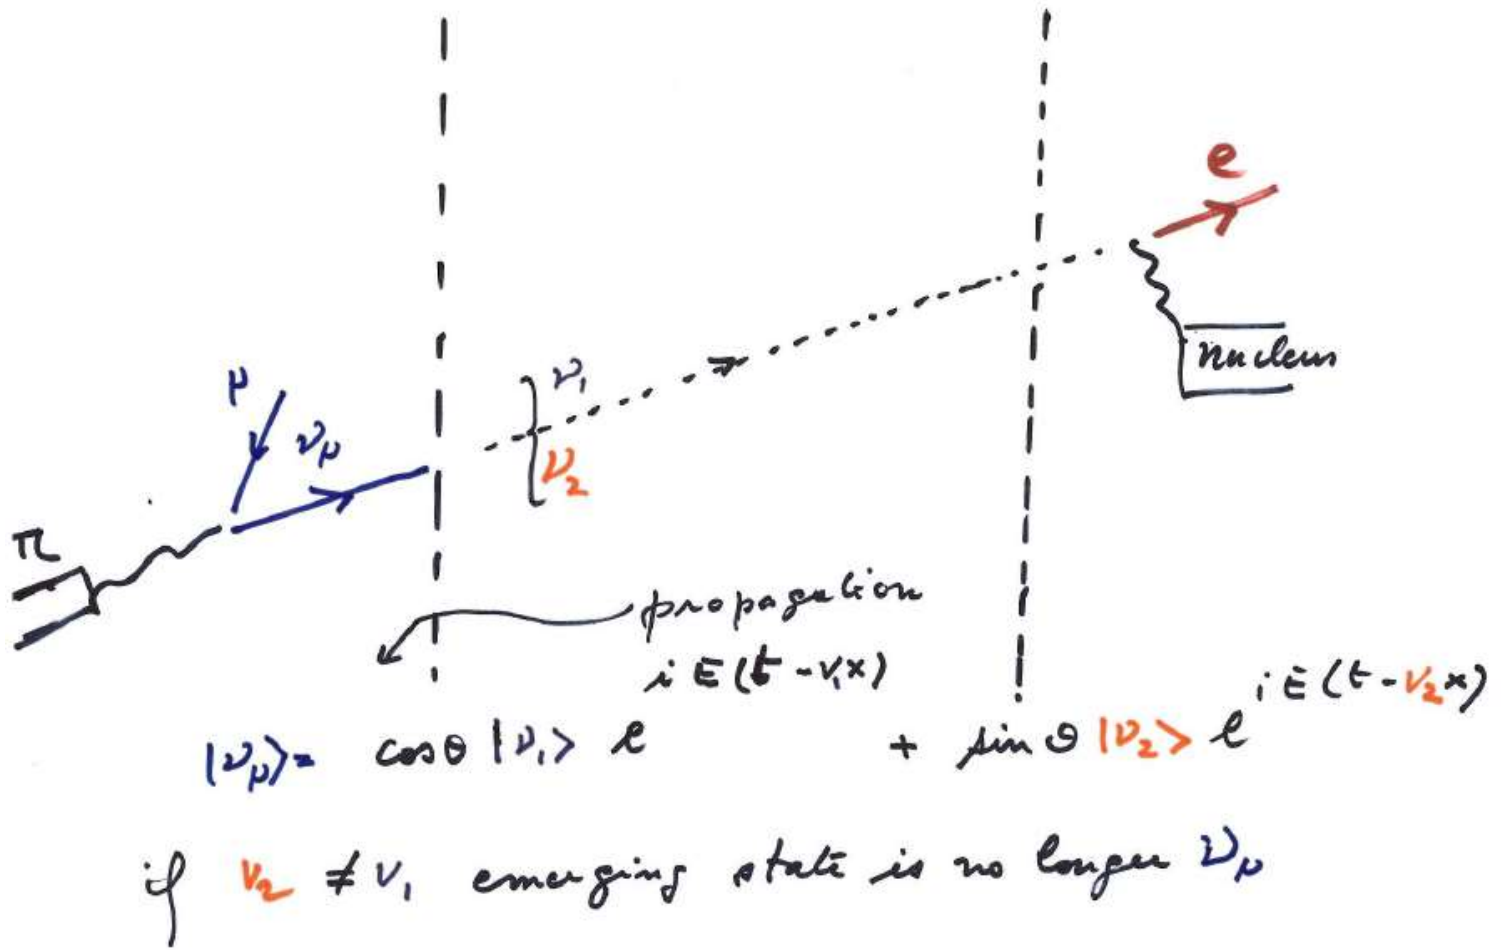 e
ν₁
nucleus
μ
ν_μ
ν₂
π
propagation
|ν_μ⟩= cosθ |ν₁⟩ e^{iE(t-v₁x)} + sinθ |ν₂⟩ e^{iE(t-v₂x)}
if v₂ ≠ v₁ emerging state is no longer ν_μ